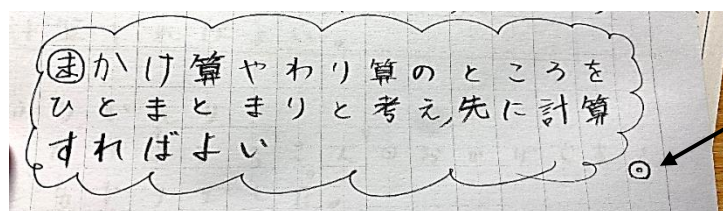 ㋮かけ算やわり算のところを
ひとまとまりと考え,先に計算
すればよい